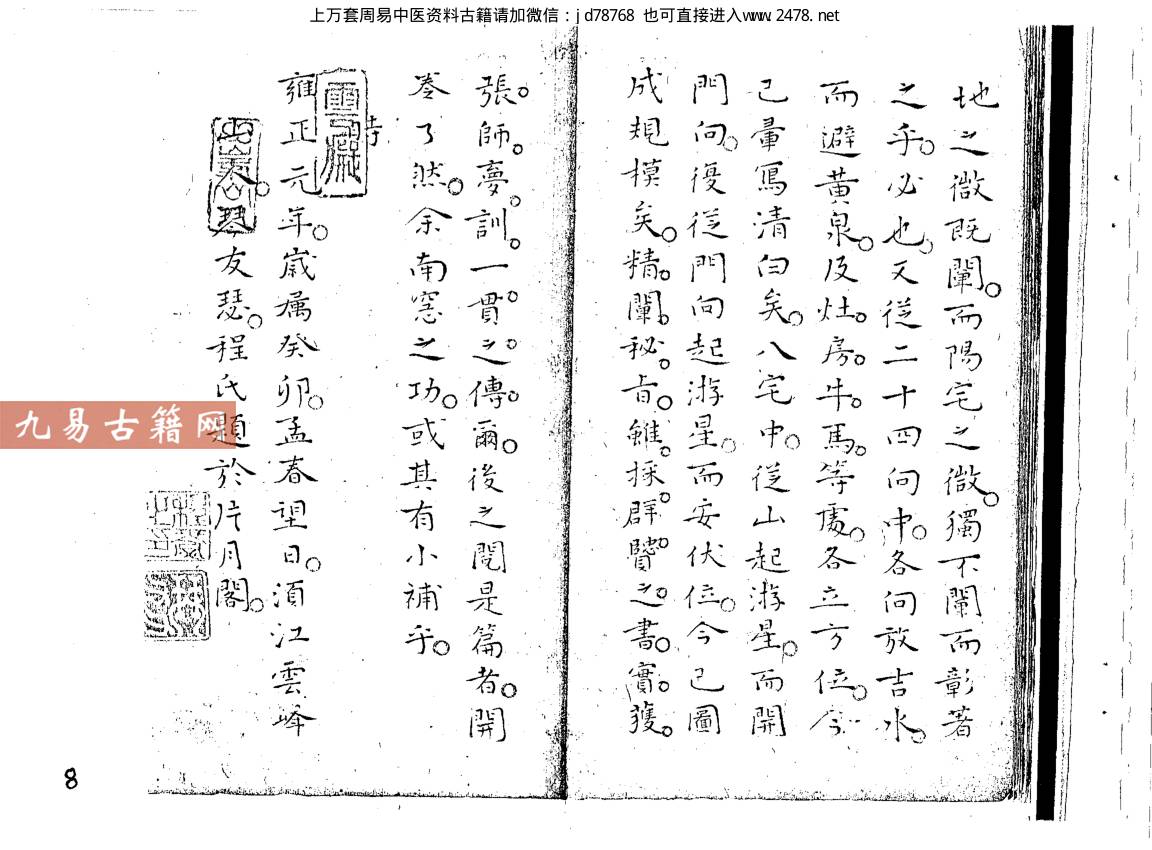 上万套周易中医资料古籍请加微信：jd78768 也可直接进入www.2478.net
地之微既闡。而陽宅之微。獨不闡而彰著
之乎。必也。又從二十四向中。各向放吉水。
而避黃泉。及灶。房。牛。馬。等處。各立方位。今
已彙寫清白矣。八宅中。從山起游星。而開
門向。復從門向起游星。而安伏位。今已圖
成規模矣。精。闡。秘。旨。雖。採。群。賢。之。書。實。獲。
張。師。夢。訓。一貫。之。傳。爾。後之閱是篇者。開
卷了然。余南窓之功。或其有小補乎。
時
雍正元年。歲属癸卯。孟春望日。湏江雲峰
琴友瑟。程氏題於片月閣。
九易古籍网
8